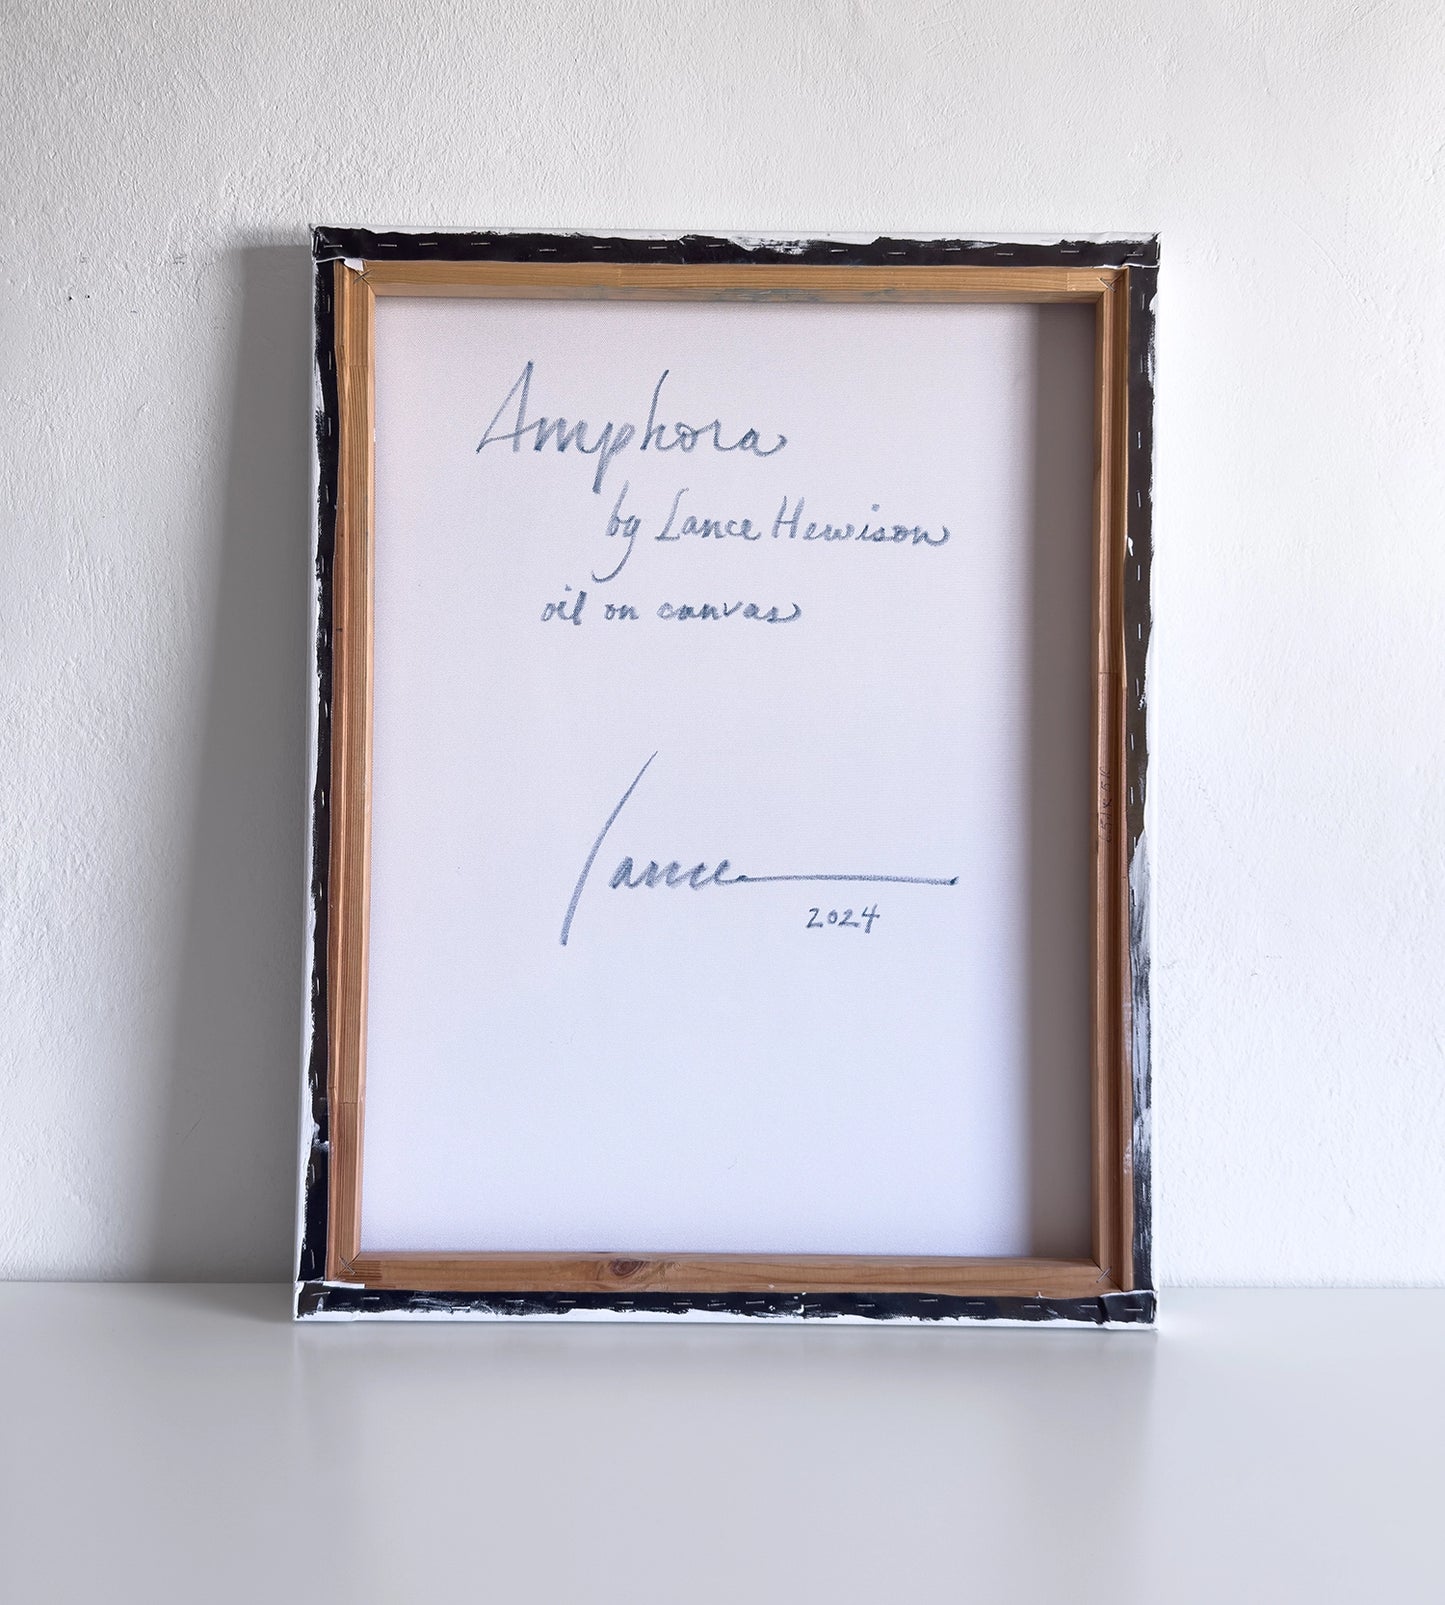 Amphora
by Lance Hewison
oil on canvas
Lance
2024